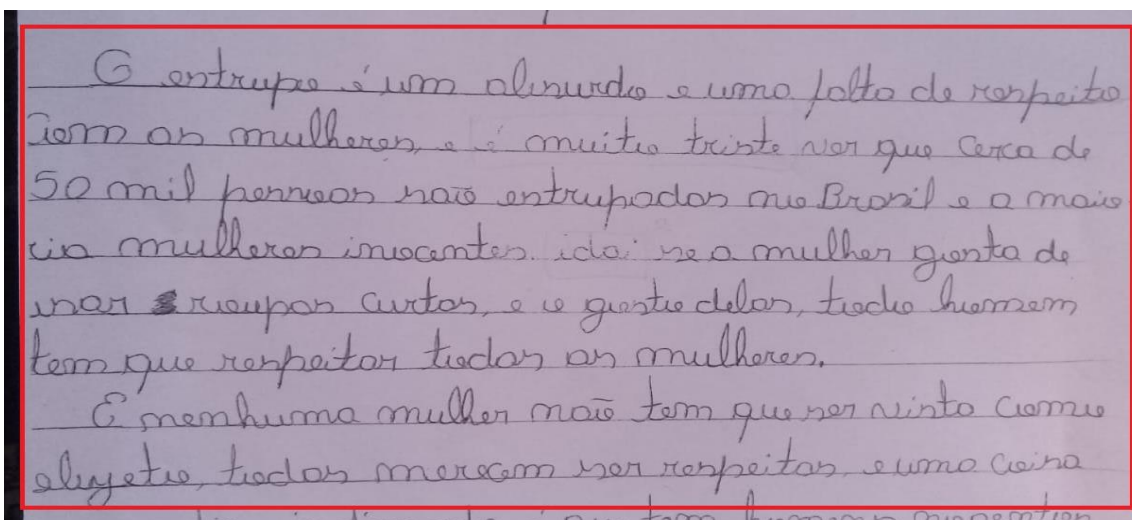 O estrupo é um absurdo e uma falta de respeito
com as mulheres, e é muito triste ver que cerca de
50 mil pessoas são estrupadas no Brasil e a maio
ria mulheres inocentes. idai se a mulher gosta de
usar roupas curtas, e o gosto delas, todo homem
tem que respeitar todas as mulheres.
E nenhuma mulher não tem que ser visto como
objeto, todas merecem ser respeitas, e uma coisa